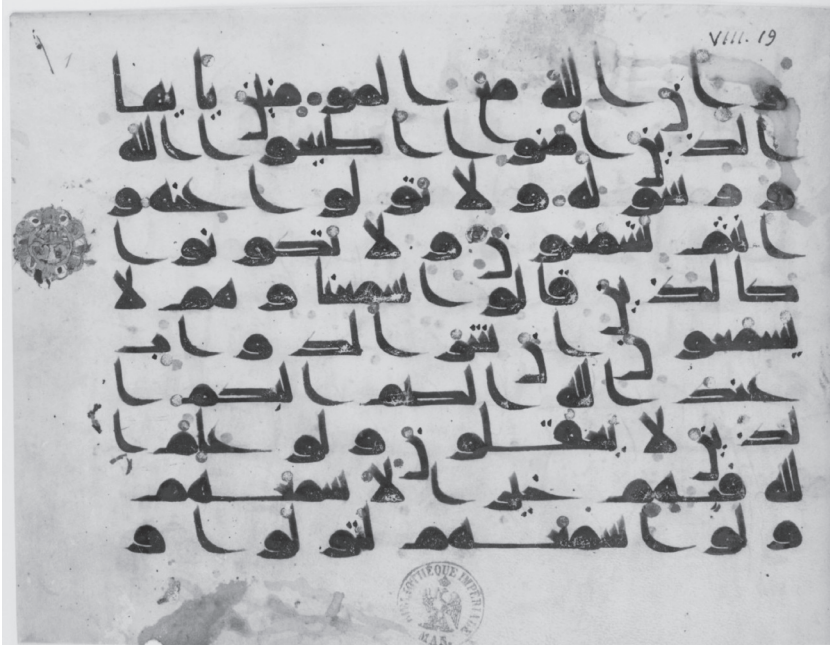 VIII. 19
وان الله مع المومنين يايها
الذين امنوا اطيعوا الله
ورسوله ولا تولوا عنه و
انتم تسمعون ولا تكونوا
كالذين قالوا سمعنا وهم لا
يسمعون ان شر الدواب
عند الله الصم البكم ا
لذين لا يعقلون ولو علم ا
لله فيهم خيرا لاسمعهم
ولو اسمعهم لتولوا و
BIBLIOTHÈQUE IMPÉRIALE